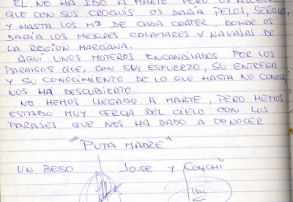 EL NO HA IDO A MARTE PERO OS ASEGURO
QUE CON SUS CROQUIS OS DARIA PELOS, SEÑALES,
Y HASTA LOS M2 DE CADA CRATER. DONDE OS
DARÍA LOS MEJORES CALAMARES Y NAVAJAS DE
LA REGION MARCIANA.
AQUI UNOS MOTEROS ENCANDILADOS POR LOS
PARAISOS QUE, CON SU ESFUERZO, SU ENTREGA
Y SU CONOCIMIENTO DE LO QUE HASTA NO CONOCE,
NOS HA DESCUBIERTO.
NO HEMOS LLEGADO A MARTE, PERO HEMOS
ESTADO MUY CERCA DEL CIELO CON LOS
PARAJES QUE NOS HA DADO A CONOCER
"PUTA MADRE"
UN BESO JOSE Y CONCHI